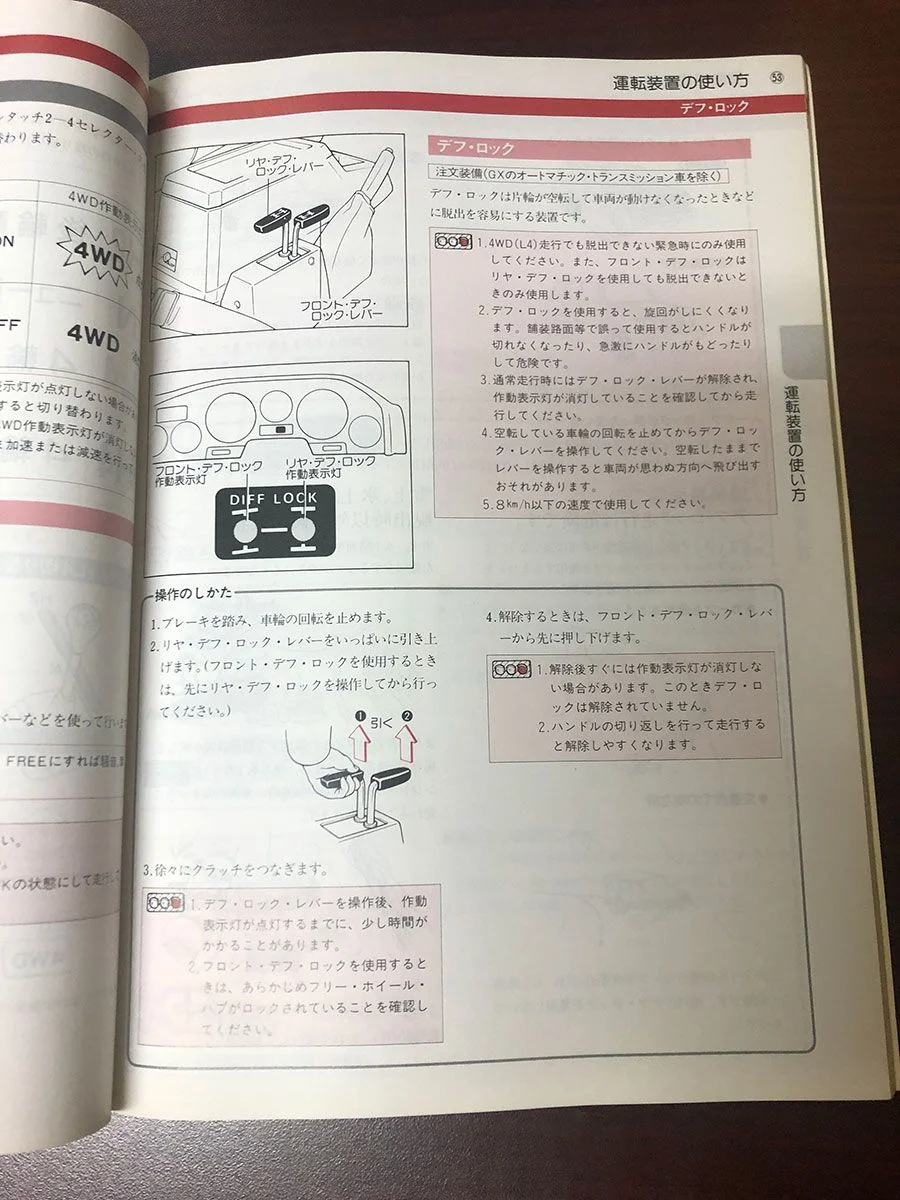 タッチ2―4セレクター・
わります。
4WD作動表
ON
4WD
FF
4WD
表示灯が点灯しない場合が
すると切り替わります。
WD作動表示灯が消灯し
加速または減速を行って
バーなどを使って行い
FREEにすれば騒音、
い。
Kの状態にして走行
運転装置の使い方 53
デフ・ロック
リヤ・デフ・
ロック・レバー
フロント・デフ・
ロック・レバー
フロント・デフ・ロック
作動表示灯
リヤ・デフ・ロック
作動表示灯
DIFF LOCK
デフ・ロック
注文装備(GXのオートマチック・トランスミッション車を除く)
デフ・ロックは片輪が空転して車両が動けなくなったときなど
に脱出を容易にする装置です。
1.4WD(L4)走行でも脱出できない緊急時にのみ使用
してください。また、フロント・デフ・ロックは
リヤ・デフ・ロックを使用しても脱出できないと
きのみ使用します。
2.デフ・ロックを使用すると、旋回がしにくくなり
ます。舗装路面等で誤って使用するとハンドルが
切れなくなったり、急激にハンドルがもどったり
して危険です。
3.通常走行時にはデフ・ロック・レバーが解除され、
作動表示灯が消灯していることを確認してから走
行してください。
4.空転している車輪の回転を止めてからデフ・ロッ
ク・レバーを操作してください。空転したままで
レバーを操作すると車両が思わぬ方向へ飛び出す
おそれがあります。
5.8km/h以下の速度で使用してください。
運転装置の使い方
操作のしかた
1.ブレーキを踏み、車輪の回転を止めます。
2.リヤ・デフ・ロック・レバーをいっぱいに引き上
げます。(フロント・デフ・ロックを使用するとき
は、先にリヤ・デフ・ロックを操作してから行っ
てください。)
❶ 引く ❷
3.徐々にクラッチをつなぎます。
1.デフ・ロック・レバーを操作後、作動
表示灯が点灯するまでに、少し時間が
かかることがあります。
2.フロント・デフ・ロックを使用すると
きは、あらかじめフリー・ホイール・
ハブがロックされていることを確認し
てください。
4.解除するときは、フロント・デフ・ロック・レバ
ーから先に押し下げます。
1.解除後すぐには作動表示灯が消灯しな
い場合があります。このときデフ・ロ
ックは解除されていません。
2.ハンドルの切り返しを行って走行する
と解除しやすくなります。